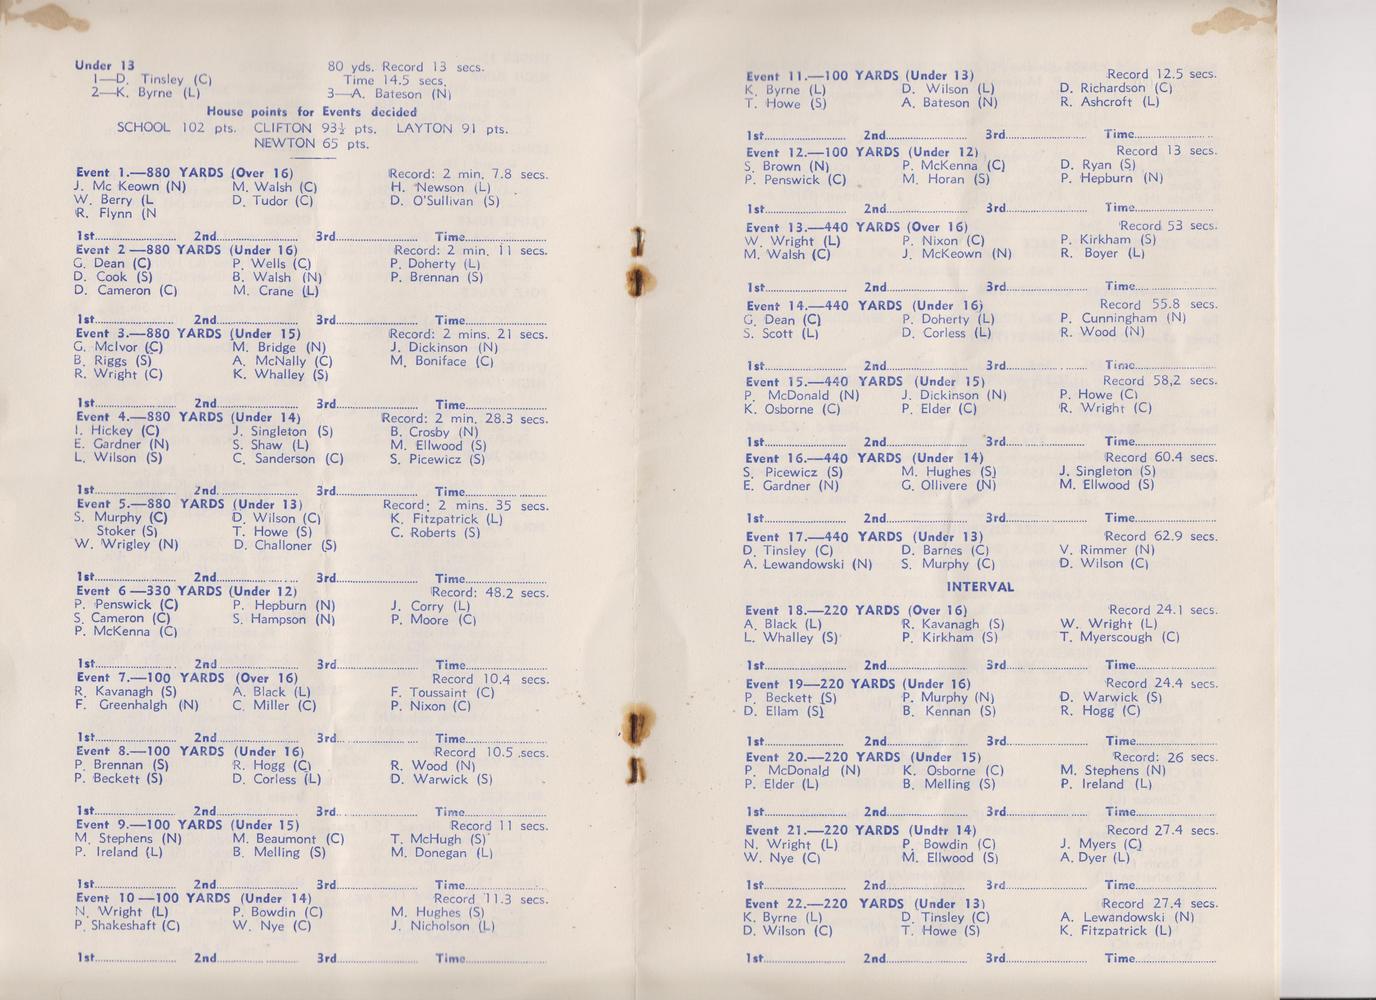 Under 13 80 yds. Record 13 secs.
1—D. Tinsley (C) Time 14.5 secs.
2—K. Byrne (L) 3—A. Bateson (N)
House points for Events decided
SCHOOL 102 pts. CLIFTON 93½ pts. LAYTON 91 pts.
NEWTON 65 pts.
Event 1.—880 YARDS (Over 16) Record: 2 min. 7.8 secs.
J. Mc Keown (N) M. Walsh (C) H. Newson (L)
W. Berry (L D. Tudor (C) D. O'Sullivan (S)
R. Flynn (N
1st.................... 2nd.................... 3rd.................... Time....................
Event 2 —880 YARDS (Under 16) Record: 2 min. 11 secs.
G. Dean (C) P. Wells (C) P. Doherty (L)
D. Cook (S) B. Walsh (N) P. Brennan (S)
D. Cameron (C) M. Crane (L)
1st.................... 2nd.................... 3rd.................... Time....................
Event 3.—880 YARDS (Under 15) Record: 2 mins. 21 secs.
G. McIvor (C) M. Bridge (N) J. Dickinson (N)
B. Riggs (S) A. McNally (C) M. Boniface (C)
R. Wright (C) K. Whalley (S)
1st.................... 2nd.................... 3rd.................... Time....................
Event 4.—880 YARDS (Under 14) Record: 2 min. 28.3 secs.
I. Hickey (C) J. Singleton (S) B. Crosby (N)
E. Gardner (N) S. Shaw (L) M. Ellwood (S)
L. Wilson (S) C. Sanderson (C) S. Picewicz (S)
1st.................... 2nd.................... 3rd.................... Time....................
Event 5.—880 YARDS (Under 13) Record: 2 mins. 35 secs.
S. Murphy (C) D. Wilson (C) K. Fitzpatrick (L)
Stoker (S) T. Howe (S) C. Roberts (S)
W. Wrigley (N) D. Challoner (S)
1st.................... 2nd.................... 3rd.................... Time....................
Event 6 —330 YARDS (Under 12) Record: 48.2 secs.
P. Penswick (C) P. Hepburn (N) J. Corry (L)
S. Cameron (C) S. Hampson (N) P. Moore (C)
P. McKenna (C)
1st.................... 2nd.................... 3rd.................... Time....................
Event 7.—100 YARDS (Over 16) Record 10.4 secs.
R. Kavanagh (S) A. Black (L) F. Toussaint (C)
F. Greenhalgh (N) C. Miller (C) P. Nixon (C)
1st.................... 2nd.................... 3rd.................... Time....................
Event 8.—100 YARDS (Under 16) Record 10.5 secs.
P. Brennan (S) R. Hogg (C) R. Wood (N)
P. Beckett (S) D. Corless (L) D. Warwick (S)
1st.................... 2nd.................... 3rd.................... Time....................
Event 9.—100 YARDS (Under 15) Record 11 secs.
M. Stephens (N) M. Beaumont (C) T. McHugh (S)
P. Ireland (L) B. Melling (S) M. Donegan (L)
1st.................... 2nd.................... 3rd.................... Time....................
Event 10 —100 YARDS (Under 14) Record 11.3 secs.
N. Wright (L) P. Bowdin (C) M. Hughes (S)
P. Shakeshaft (C) W. Nye (C) J. Nicholson (L)
1st.................... 2nd.................... 3rd.................... Time....................
Event 11.—100 YARDS (Under 13) Record 12.5 secs.
K. Byrne (L) D. Wilson (L) D. Richardson (C)
T. Howe (S) A. Bateson (N) R. Ashcroft (L)
1st.................... 2nd.................... 3rd.................... Time....................
Event 12.—100 YARDS (Under 12) Record 13 secs.
S. Brown (N) P. McKenna (C) D. Ryan (S)
P. Penswick (C) M. Horan (S) P. Hepburn (N)
1st.................... 2nd.................... 3rd.................... Time....................
Event 13.—440 YARDS (Over 16) Record 53 secs.
W. Wright (L) P. Nixon (C) P. Kirkham (S)
M. Walsh (C) J. McKeown (N) R. Boyer (L)
1st.................... 2nd.................... 3rd.................... Time....................
Event 14.—440 YARDS (Under 16) Record 55.8 secs.
G. Dean (C) P. Doherty (L) P. Cunningham (N)
S. Scott (L) D. Corless (L) R. Wood (N)
1st.................... 2nd.................... 3rd.................... Time....................
Event 15.—440 YARDS (Under 15) Record 58,2 secs.
P. McDonald (N) J. Dickinson (N) P. Howe (C)
K. Osborne (C) P. Elder (C) R. Wright (C)
1st.................... 2nd.................... 3rd.................... Time....................
Event 16.—440 YARDS (Under 14) Record 60.4 secs.
S. Picewicz (S) M. Hughes (S) J. Singleton (S)
E. Gardner (N) G. Ollivere (N) M. Ellwood (S)
1st.................... 2nd.................... 3rd.................... Time....................
Event 17.—440 YARDS (Under 13) Record 62.9 secs.
D. Tinsley (C) D. Barnes (C) V. Rimmer (N)
A. Lewandowski (N) S. Murphy (C) D. Wilson (C)
INTERVAL
Event 18.—220 YARDS (Over 16) Record 24.1 secs.
A. Black (L) R. Kavanagh (S) W. Wright (L)
L. Whalley (S) P. Kirkham (S) T. Myerscough (C)
1st.................... 2nd.................... 3rd.................... Time....................
Event 19—220 YARDS (Under 16) Record 24.4 secs.
P. Beckett (S) P. Murphy (N) D. Warwick (S)
D. Ellam (S) B. Kennan (S) R. Hogg (C)
1st.................... 2nd.................... 3rd.................... Time....................
Event 20.—220 YARDS (Under 15) Record: 26 secs.
P. McDonald (N) K. Osborne (C) M. Stephens (N)
P. Elder (L) B. Melling (S) P. Ireland (L)
1st.................... 2nd.................... 3rd.................... Time....................
Event 21.—220 YARDS (Undtr 14) Record 27.4 secs.
N. Wright (L) P. Bowdin (C) J. Myers (C)
W. Nye (C) M. Ellwood (S) A. Dyer (L)
1st.................... 2nd.................... 3rd.................... Time....................
Event 22.—220 YARDS (Under 13) Record 27.4 secs.
K. Byrne (L) D. Tinsley (C) A. Lewandowski (N)
D. Wilson (C) T. Howe (S) K. Fitzpatrick (L)
1st.................... 2nd.................... 3rd.................... Time....................